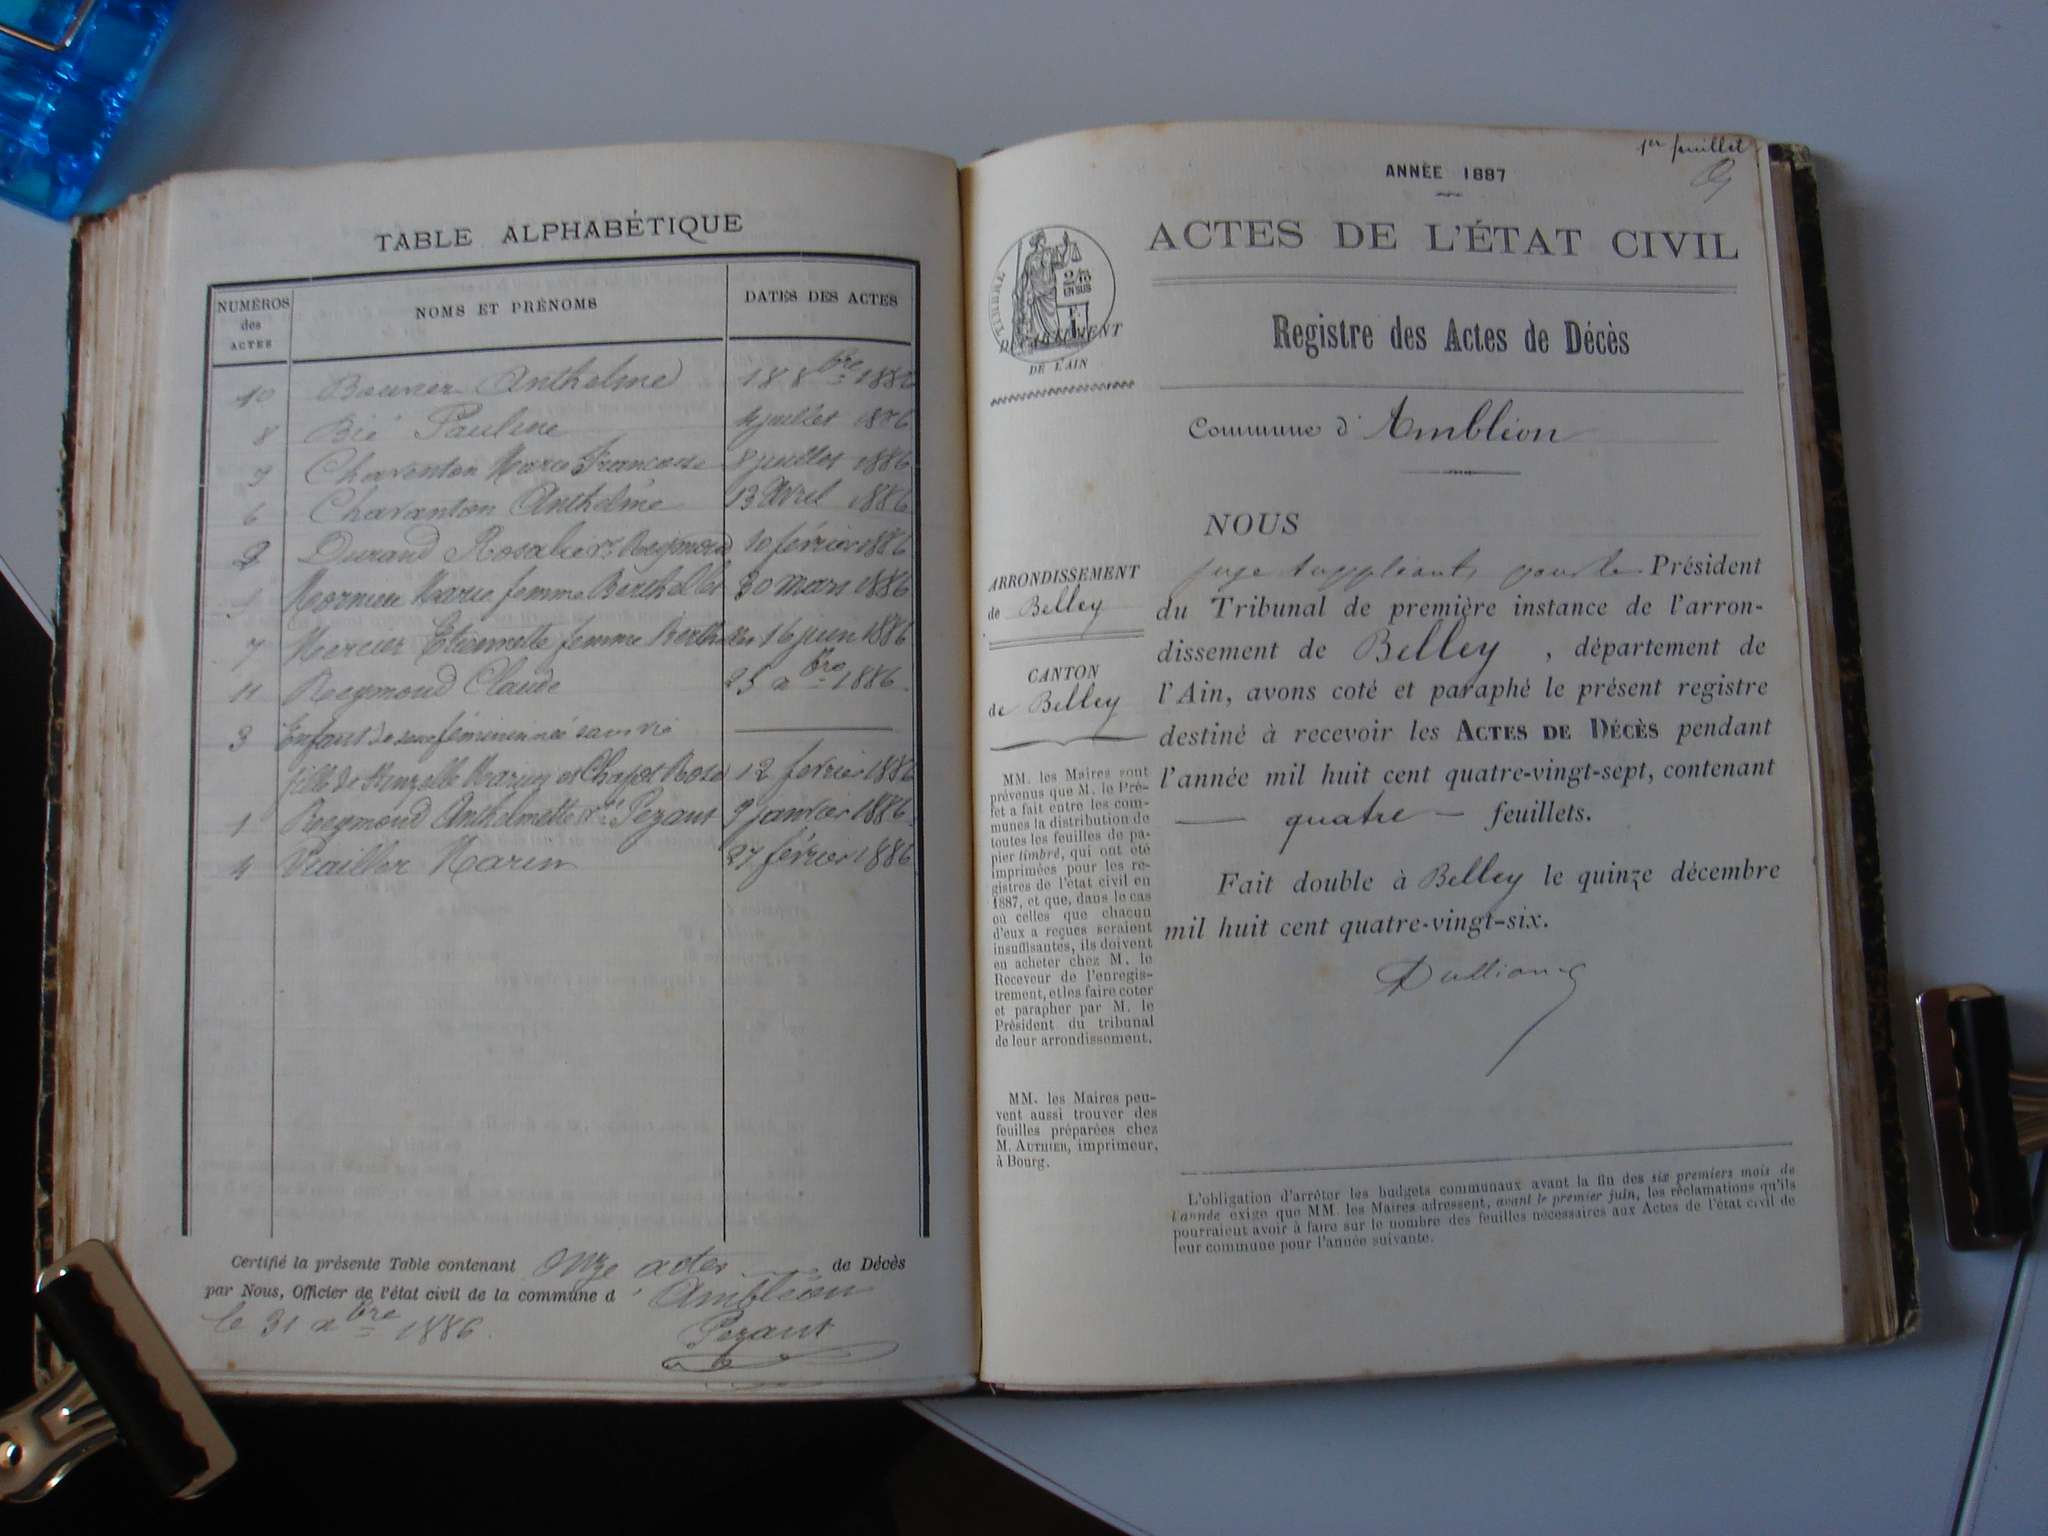 TABLE ALPHABÉTIQUE
NUMÉROS des ACTES
NOMS ET PRÉNOMS
DATES DES ACTES
10 Bouvier Anthelme 18 8bre 1886
8 Bié Pauline 4 juillet 1886
9 Chavanton Marie Francoise 8 juillet 1886
6 Chavanton Anthelme 13 Avril 1886
2 Durand Rosalie ve Reymond 10 février 1886
Marie femme Berthelet 30 mars 1886
7 Mercier Etiennette femme 16 juin 1886
11 Reymond Claude 25 xbre 1886
3 Enfant de sexe féminin née sans vie
fille de Marin et Chapot Rose 12 fevrier 1886
1 Reymond Anthelmette ve Pezant 9 janvier 1886
4 Marin 27 février 1886
Certifié la présente Table contenant onze actes de Décès
par Nous, Officier de l'état civil de la commune d'Ambléon
le 31 xbre 1886.
Pezant
1er feuillet
ANNÉE 1887
ACTES DE L'ÉTAT CIVIL
TIMBRE
2/10 EN SUS
DÉPARTEMENT
DE L'AIN
Registre des Actes de Décès
Commune d'Ambléon
ARRONDISSEMENT
de Belley
CANTON
de Belley
MM. les Maires sont
prévenus que M. le Pré-
fet a fait entre les com-
munes la distribution de
toutes les feuilles de pa-
pier timbré, qui ont été
imprimées pour les re-
gistres de l'état civil en
1887, et que, dans le cas
où celles que chacun
d'eux a reçues seraient
insuffisantes, ils doivent
en acheter chez M. le
Receveur de l'enregis-
trement, et les faire coter
et parapher par M. le
Président du tribunal
de leur arrondissement.
MM. les Maires peu-
vent aussi trouver des
feuilles préparées chez
M. AUTHIER, imprimeur,
à Bourg.
NOUS
juge suppléant pour le Président
du Tribunal de première instance de l'arron-
dissement de Belley, département de
l'Ain, avons coté et paraphé le présent registre
destiné à recevoir les ACTES DE DÉCÈS pendant
l'année mil huit cent quatre-vingt-sept, contenant
— quatre — feuillets.
Fait double à Belley le quinze décembre
mil huit cent quatre-vingt-six.
L'obligation d'arrêter les budgets communaux avant la fin des six premiers mois de
l'année exige que MM. les Maires adressent, avant le premier juin, les réclamations qu'ils
pourraient avoir à faire sur le nombre des feuilles nécessaires aux Actes de l'état civil de
leur commune pour l'année suivante.